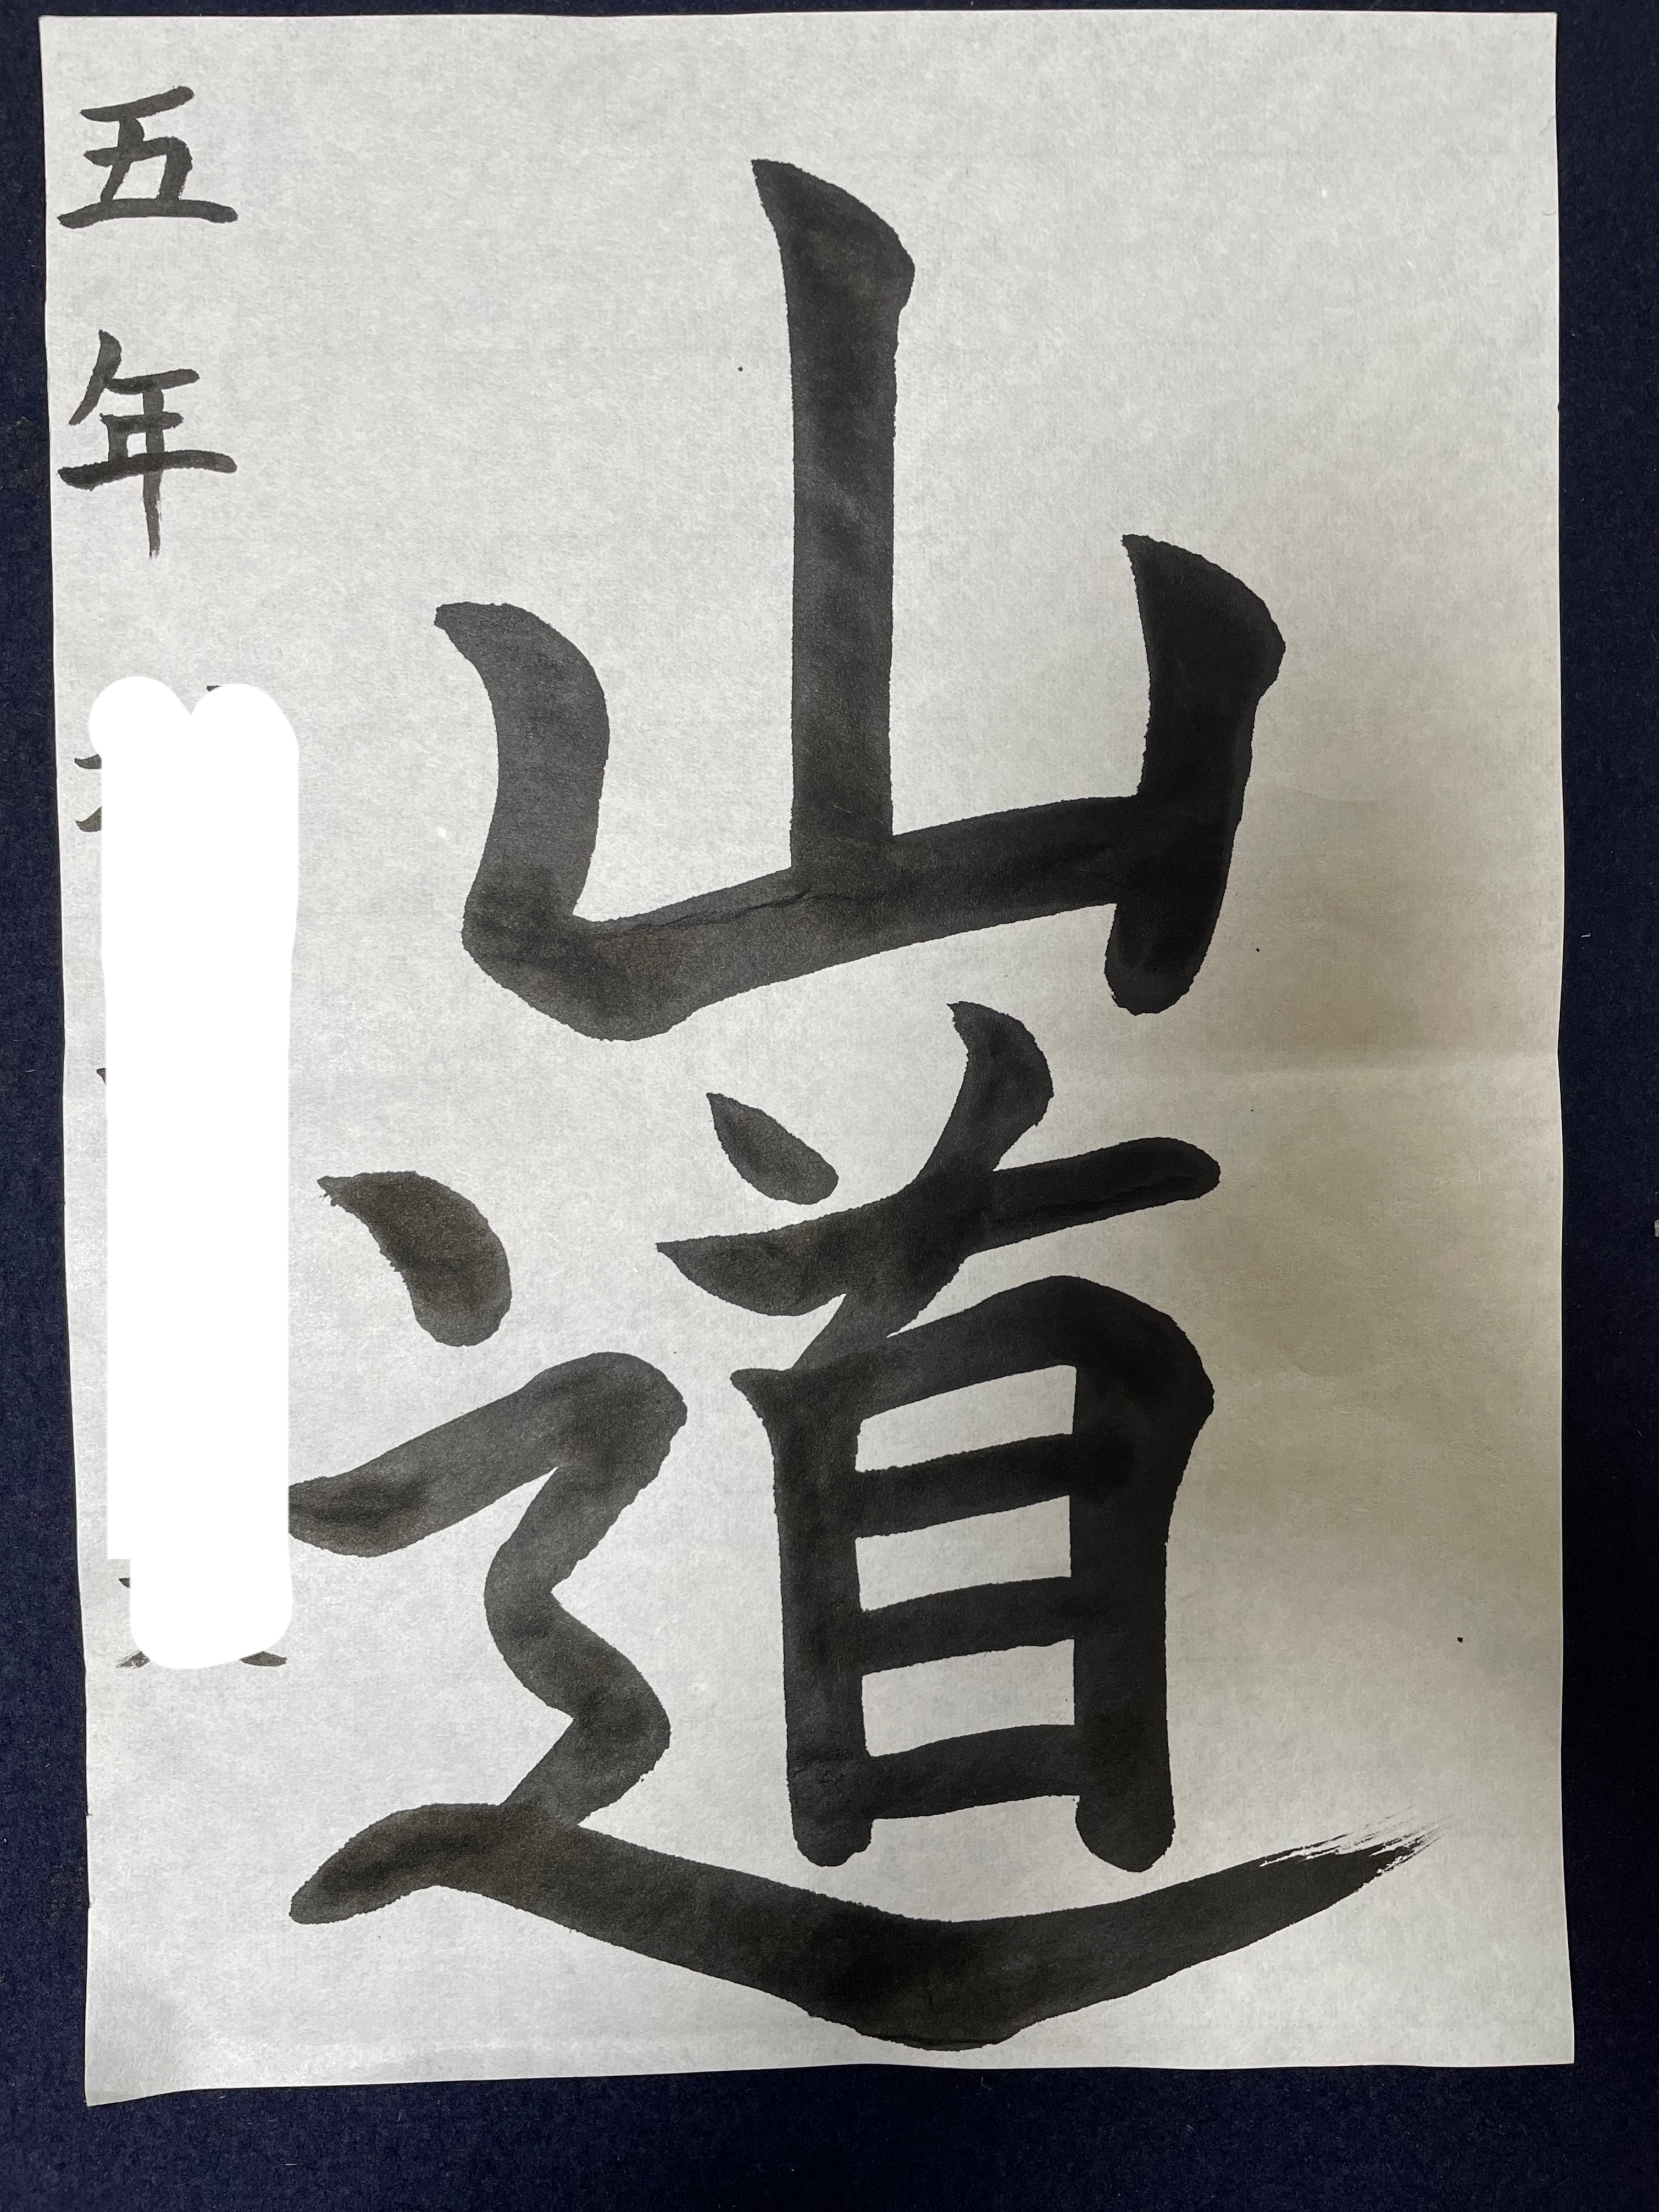 山道
五年